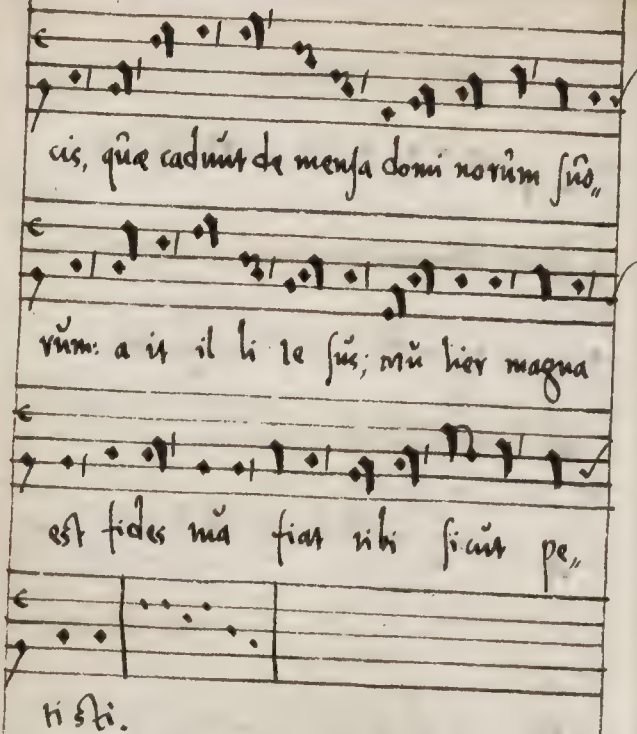 cis, quæ cadunt de mensa domi norum suo„
rum: a it il li Ie sus; mu lier magna
est fides tua fiat tibi sicut pe„
ti sti.